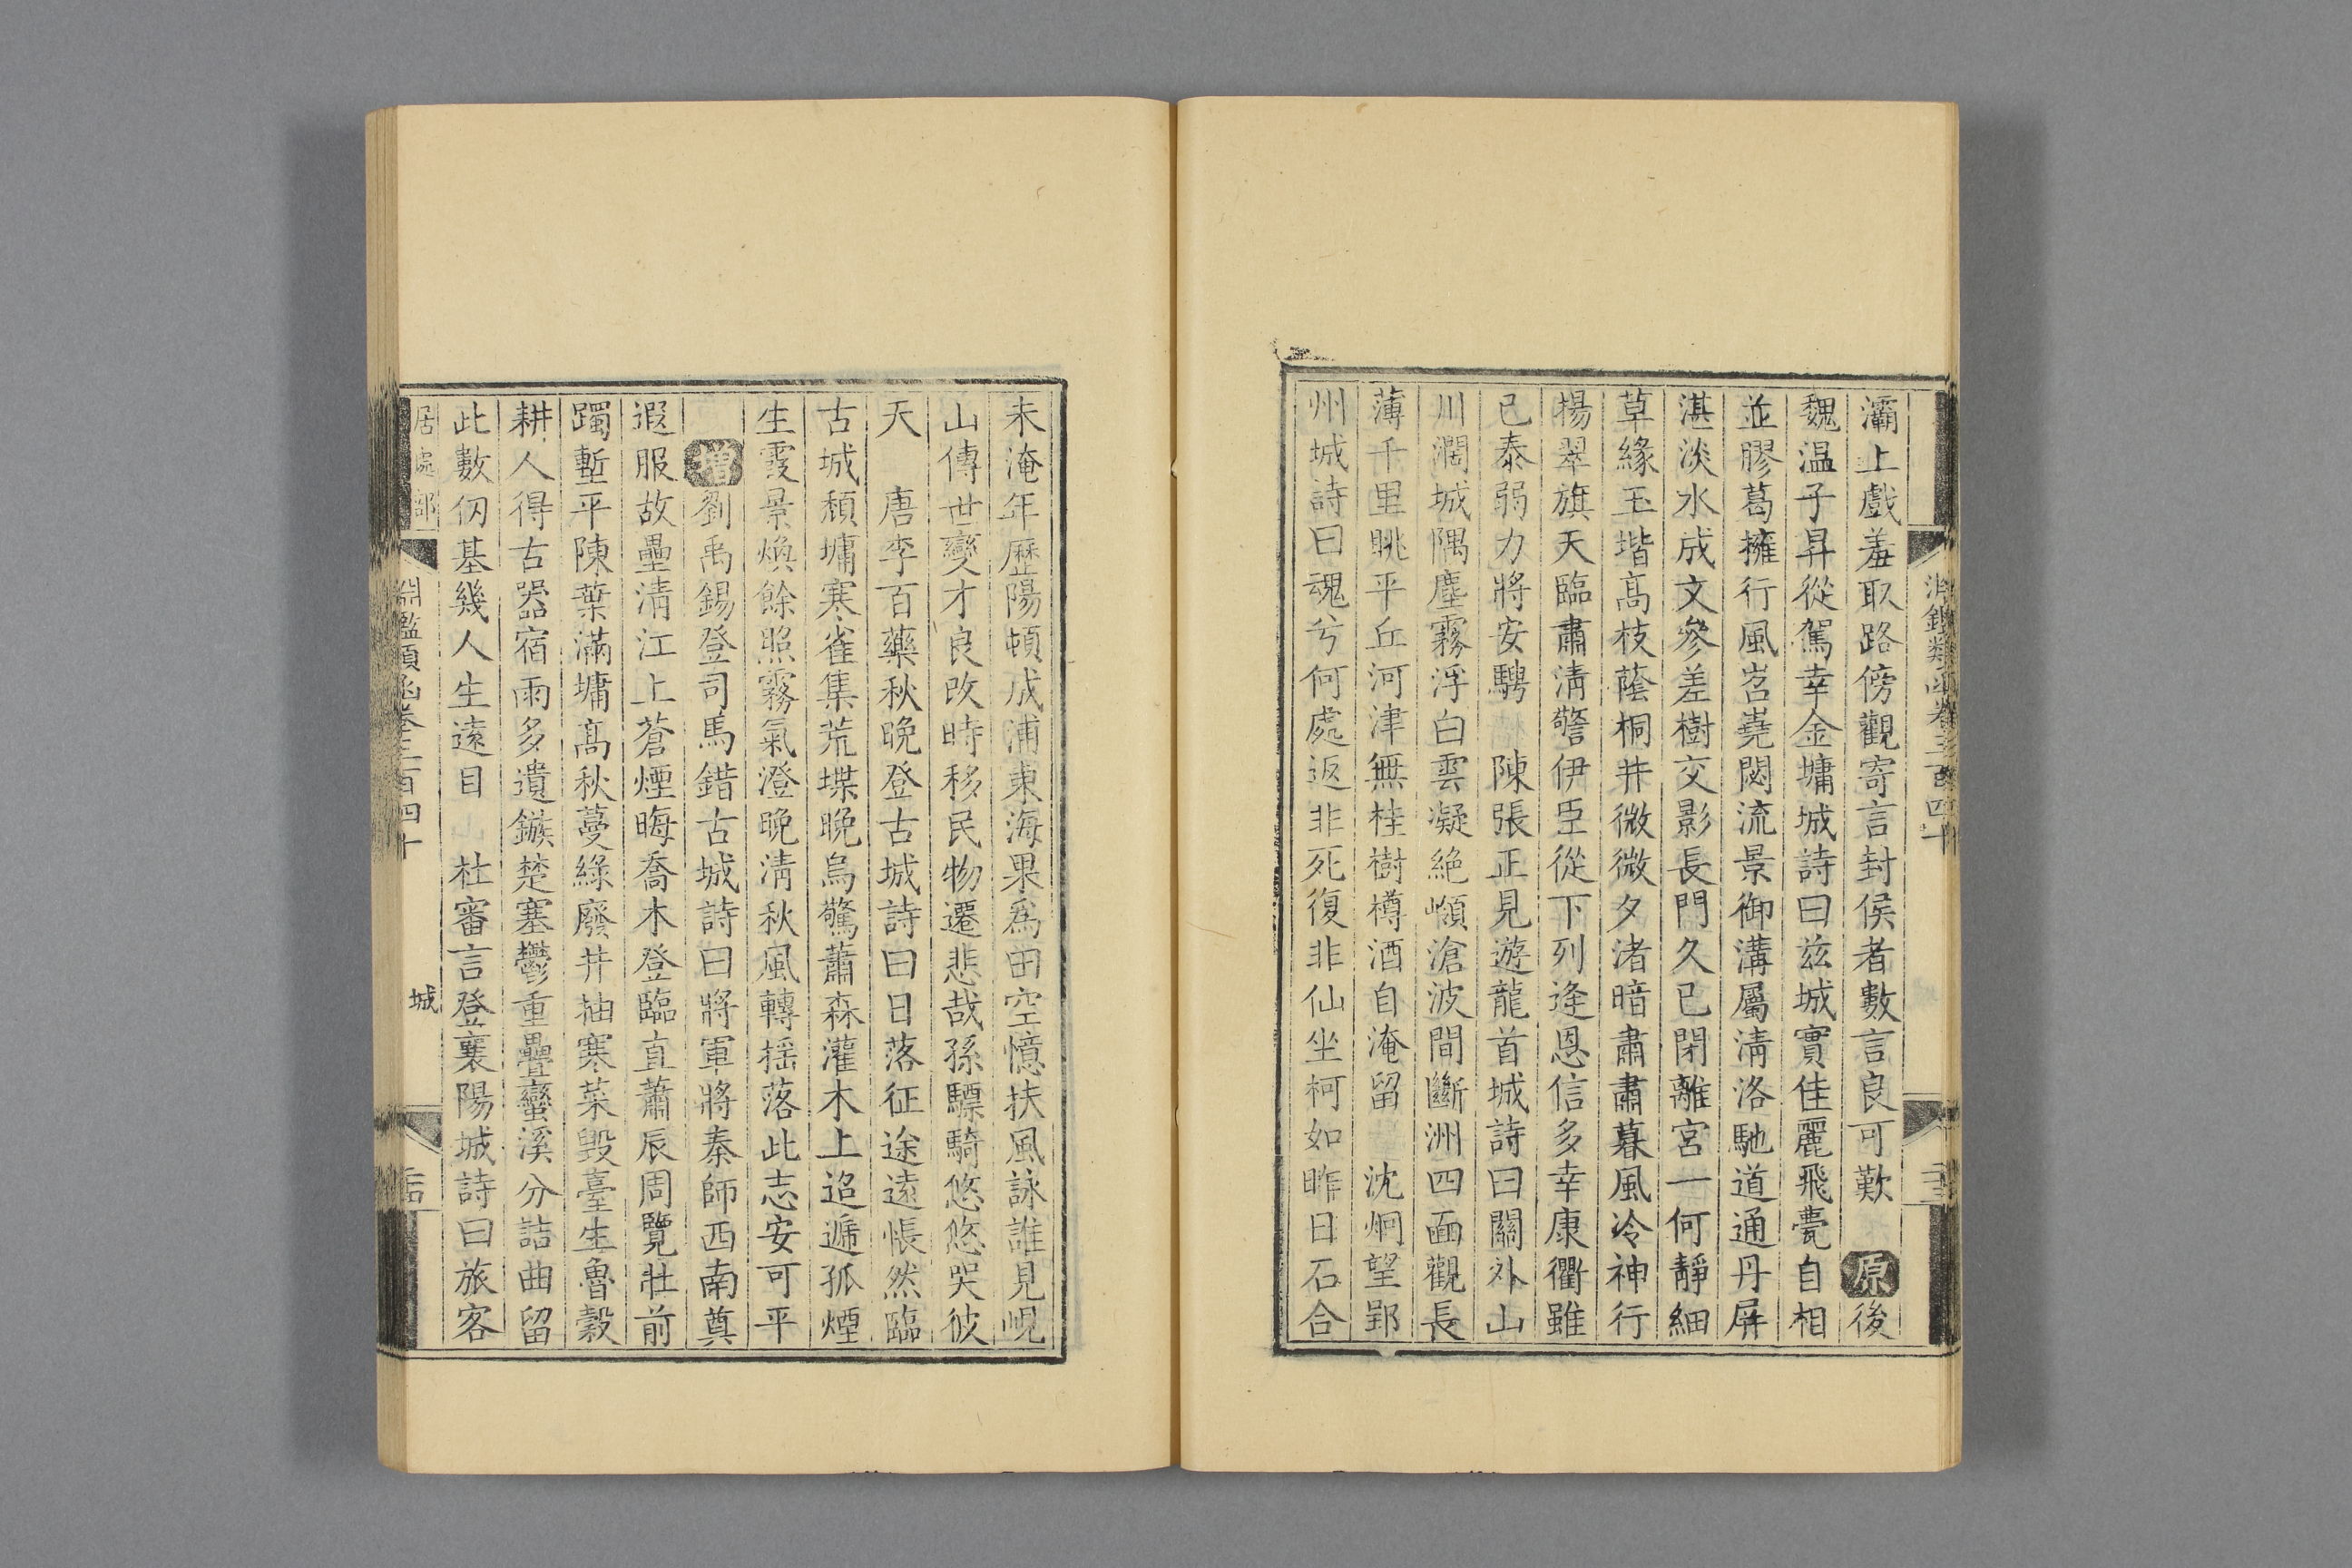 灞上戲羞取路傍觀寄言封侯者數言良可歎 原後
魏温子昇從駕幸金墉城詩曰茲城實佳麗飛甍自相
並膠葛擁行風岧嶤閟流景御溝屬清洛馳道通丹屏
湛淡水成文參差樹交影長門久已閉離宮一何靜細
草緣玉堦高枝蔭桐井微微夕渚暗肅肅暮風冷神行
揚翠旗天臨肅清警伊臣從下列逢恩信多幸康衢雖
已泰弱力將安騁 陳張正見遊龍首城詩曰關外山
川濶城隅塵霧浮白雲凝絶嶺滄波間斷洲四面觀長
薄千里眺平丘河津無桂樹樽酒自淹留 沈炯望郢
州城詩曰魂兮何處返非死復非仙坐柯如昨日石合
未淹年歷陽頓成浦東海果爲田空憶扶風詠誰見峴
山傳世變才良改時移民物遷悲哉孫驃騎悠悠哭彼
天 唐李百藥秋晚登古城詩曰日落征途遠悵然臨
古城頹墉寒雀集荒堞晚烏驚蕭森灌木上迢遞孤煙
生霞景煥餘照霧氣澄晚清秋風轉揺落此志安可平
增劉禹錫登司馬錯古城詩曰將軍將秦師西南奠
遐服故壘清江上蒼煙晦喬木登臨直蕭辰周覽壯前
躅塹平陳葉滿墉高秋蔓綠廢井抽寒菜毀臺生魯穀
耕人得古器宿雨多遺鏃楚塞鬱重疊蠻溪分詰曲留
此數仞基幾人生遠目 杜審言登襄陽城詩曰旅客
居處部 淵鑑類函卷三百四十 城